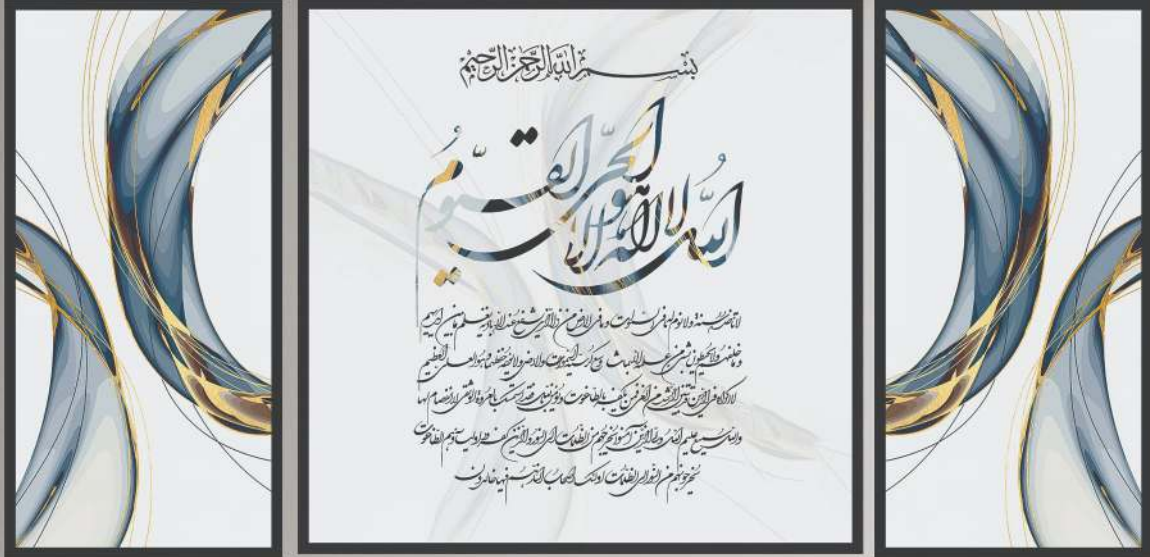 بِسْمِ اللهِ الرَّحْمٰنِ الرَّحِيمِ
اللهُ لا اله الا هو الحیّ القیّومُ
لا تاخذه سنة ولا نوم له ما فی السموات وما فی الارض من ذا الذی یشفع عنده الا باذنه یعلم ما بین ایدیهم
وما خلفهم ولا یحیطون بشئ من علمه الا بما شاء وسع کرسیه السموات والارض ولا یؤده حفظهما وهو العلی العظیم
لا اکراه فی الدین قد تبین الرشد من الغی فمن یکفر بالطاغوت ویؤمن بالله فقد استمسک بالعروة الوثقی لا انفصام لها
والله سمیع علیم الله ولی الذین آمنوا یخرجهم من الظلمات الی النور والذین کفروا اولیاؤهم الطاغوت
یخرجونهم من النور الی الظلمات اولئک اصحاب النار هم فیها خالدون